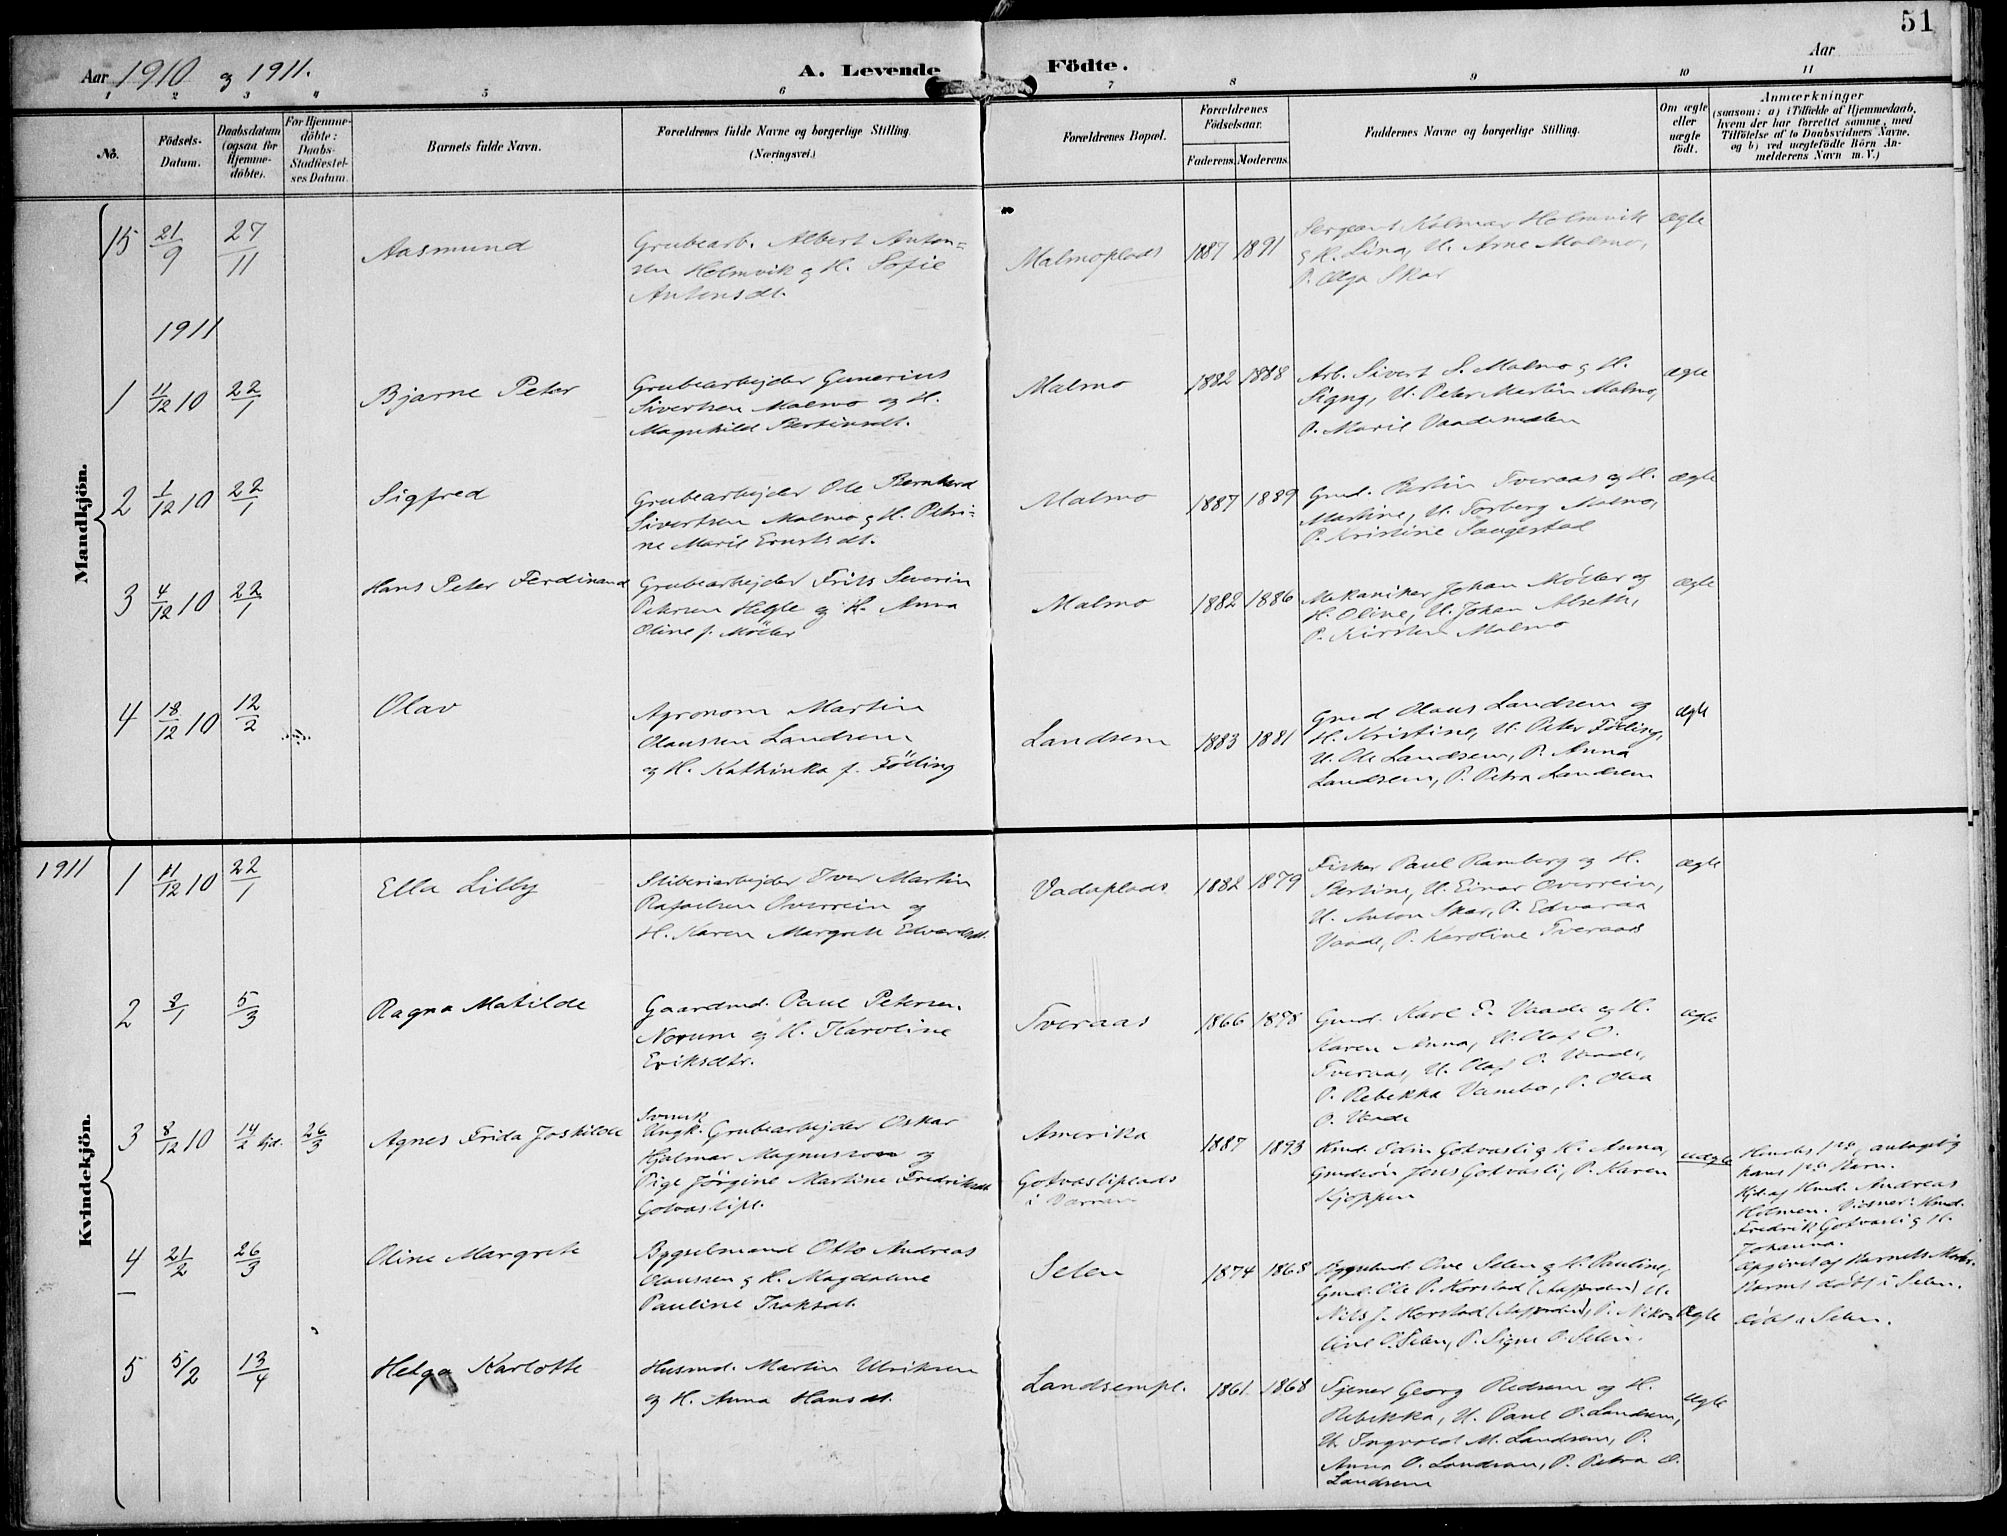 51
Aar 1910 og 1911.
A. Levende Födte.
Aar
1 2 3 4 5 6 7 8 9 10 11
No.
Födsels-
Datum.
Daabsdatum
(ogsaa for
Hjemme-
döbte).
For Hjemme-
döbte:
Daabs-
Stadfæstel-
ses Datum.
Barnets fulde Navn.
Forældrenes fulde Navne og borgerlige Stilling.
(Næringsvei.)
Forældrenes Bopæl.
Forældrenes
Födselsaar.
Faderens. Moderens.
Faddernes Navne og borgerlige Stilling.
Om ægte
eller
uægte
födt.
Anmærkninger
(saasom: a) i Tilfælde af Hjemmedaab,
hvem der har forrettet samme, med
Tilföielse af to Daabsvidners Navne.
og b) ved uægtefödte Börn An-
melderens Navn m. V.)
Mandkjön.
15 21/9 27/11
Aasmund
Grubearb. Albert Anton=
sen Holmvik og H. Sofie
Antonsdt.
Malmoplads
1887 1891
Sergeant Kolmar Holmvik
og H. Lina, U. Arne Malmo,
P. Olga Skar
ægte
1911
1 11/12 10 22/1
Bjarne Peter
Grubearbejder Gunerius
Sivertsen Malmo og H.
Magnhild Bertinsdt.
Malmo
1882 1888
Arb. Sivert S. Malmo og H.
Signy, U. Peter Martin Malmo,
P. Marie
ægte
2 1/12 10 22/1
Sigfred
Grubearbejder Ole Bernhard
Sivertsen Malmo og H. Petri=
ne Marie Ernstsdt.
Malmo
1887 1889
Gmd. Bertin Tveraas og H.
Martine, U. Torberg Malmo,
P. Kristine Saugestad
ægte
3 4/12 10 22/1
Hans Peter Ferdinand
Grubearbejder Frits Severin
Petersen Helge og H. Anna
Oline f. Möller
Malmo
1882 1886
Mekaniker Johan Möller og
H. Oline, U. Johan
P. Kirsten Malmo
ægte
4 18/12 10 12/2
Olav
Agronom Martin
Olaussen Landsem
og H. Kathinka f. Fölling
Landsem
1883 1881
Gmd Olaus Landsem og
H. Kristine, U. Peter Fölling,
U. Ole Landsem, P. Anna
Landsem, P. Petra Landsem
ægte
Kvindekjön.
1911
1 11/12 10 22/1
Ella Lilly
Sliberiarbejder Iver Martin
Rafaelsen Overrein og
H. Karen Margrete Edvardsdt.
Vadaplads
1882 1879
Fisker Paul Ramberg og H.
Bertine, U. Einar Overrein,
U. Anton Skar, P. Edvarda
Vaade, P. Karoline Tveraas
ægte
2 8/1 5/3
Ragna Matilde
Gaardmd. Paul Petersen
Norum og H. Karoline
Eriksdtr.
Tveraas
1866
Gmd. Karl P. Vaade og H.
Karen Anna, U. Olaf O.
Tveraas, U. Olaf P. Vaade,
P. Rebekka Vambo, P. Olea
O. Vaade
ægte
3 8/12 10 14/2 hjd. 26/3
Agnes Frida Joshilde
Svensk
Ungk. Grubearbejder Oskar
Hjalmar Magnusson og
Pige Jörgine Martine Fredriksdt.
Gotvaslipl.
Amerika
Gotvasliplads
i Verran
1887 1893
Kmd. Edin Gotvasli og H. Anna,
Jens Gotvasli, P. Karen
Kjoppen
uægte
Hendes 1ste, antagelig
hans 1ste Barn.
Hjd. af Hmd. Andreas
Holmen. Vidner: Hmd.
Fredrik Gotvasli og H.
Johanna.
Opgivet af Barnets Moder.
Barnet döbt i Selen.
4 21/2 26/3
Oline Margrete
Bygselmand Otto Andreas
Olaussen og H. Magdalene
Pauline Isaksdt.
Selen
1874 1868
Bygselmd. Ove Selen og H. Pauline,
Gmd. Ole P. Horstad (Aafjorden) U.
Nils J. Horstad (Aafjorden), P. Niko-
line O. Selen, P. Signe O. Selen.
Ægte
döbt i Selen.
5 5/2 13/4
Helga Karlotte
Husmd. Martin Ulriksen
og H. Anna Hansdt.
Landsempl.
1861 1868
Tjener Georg Redsem og H.
Rebekka, U. Paul O. Landsem,
U. Ingvald M. Landsem, P.
Anna O. Landsem, P. Petra O.
Landsem
ægte